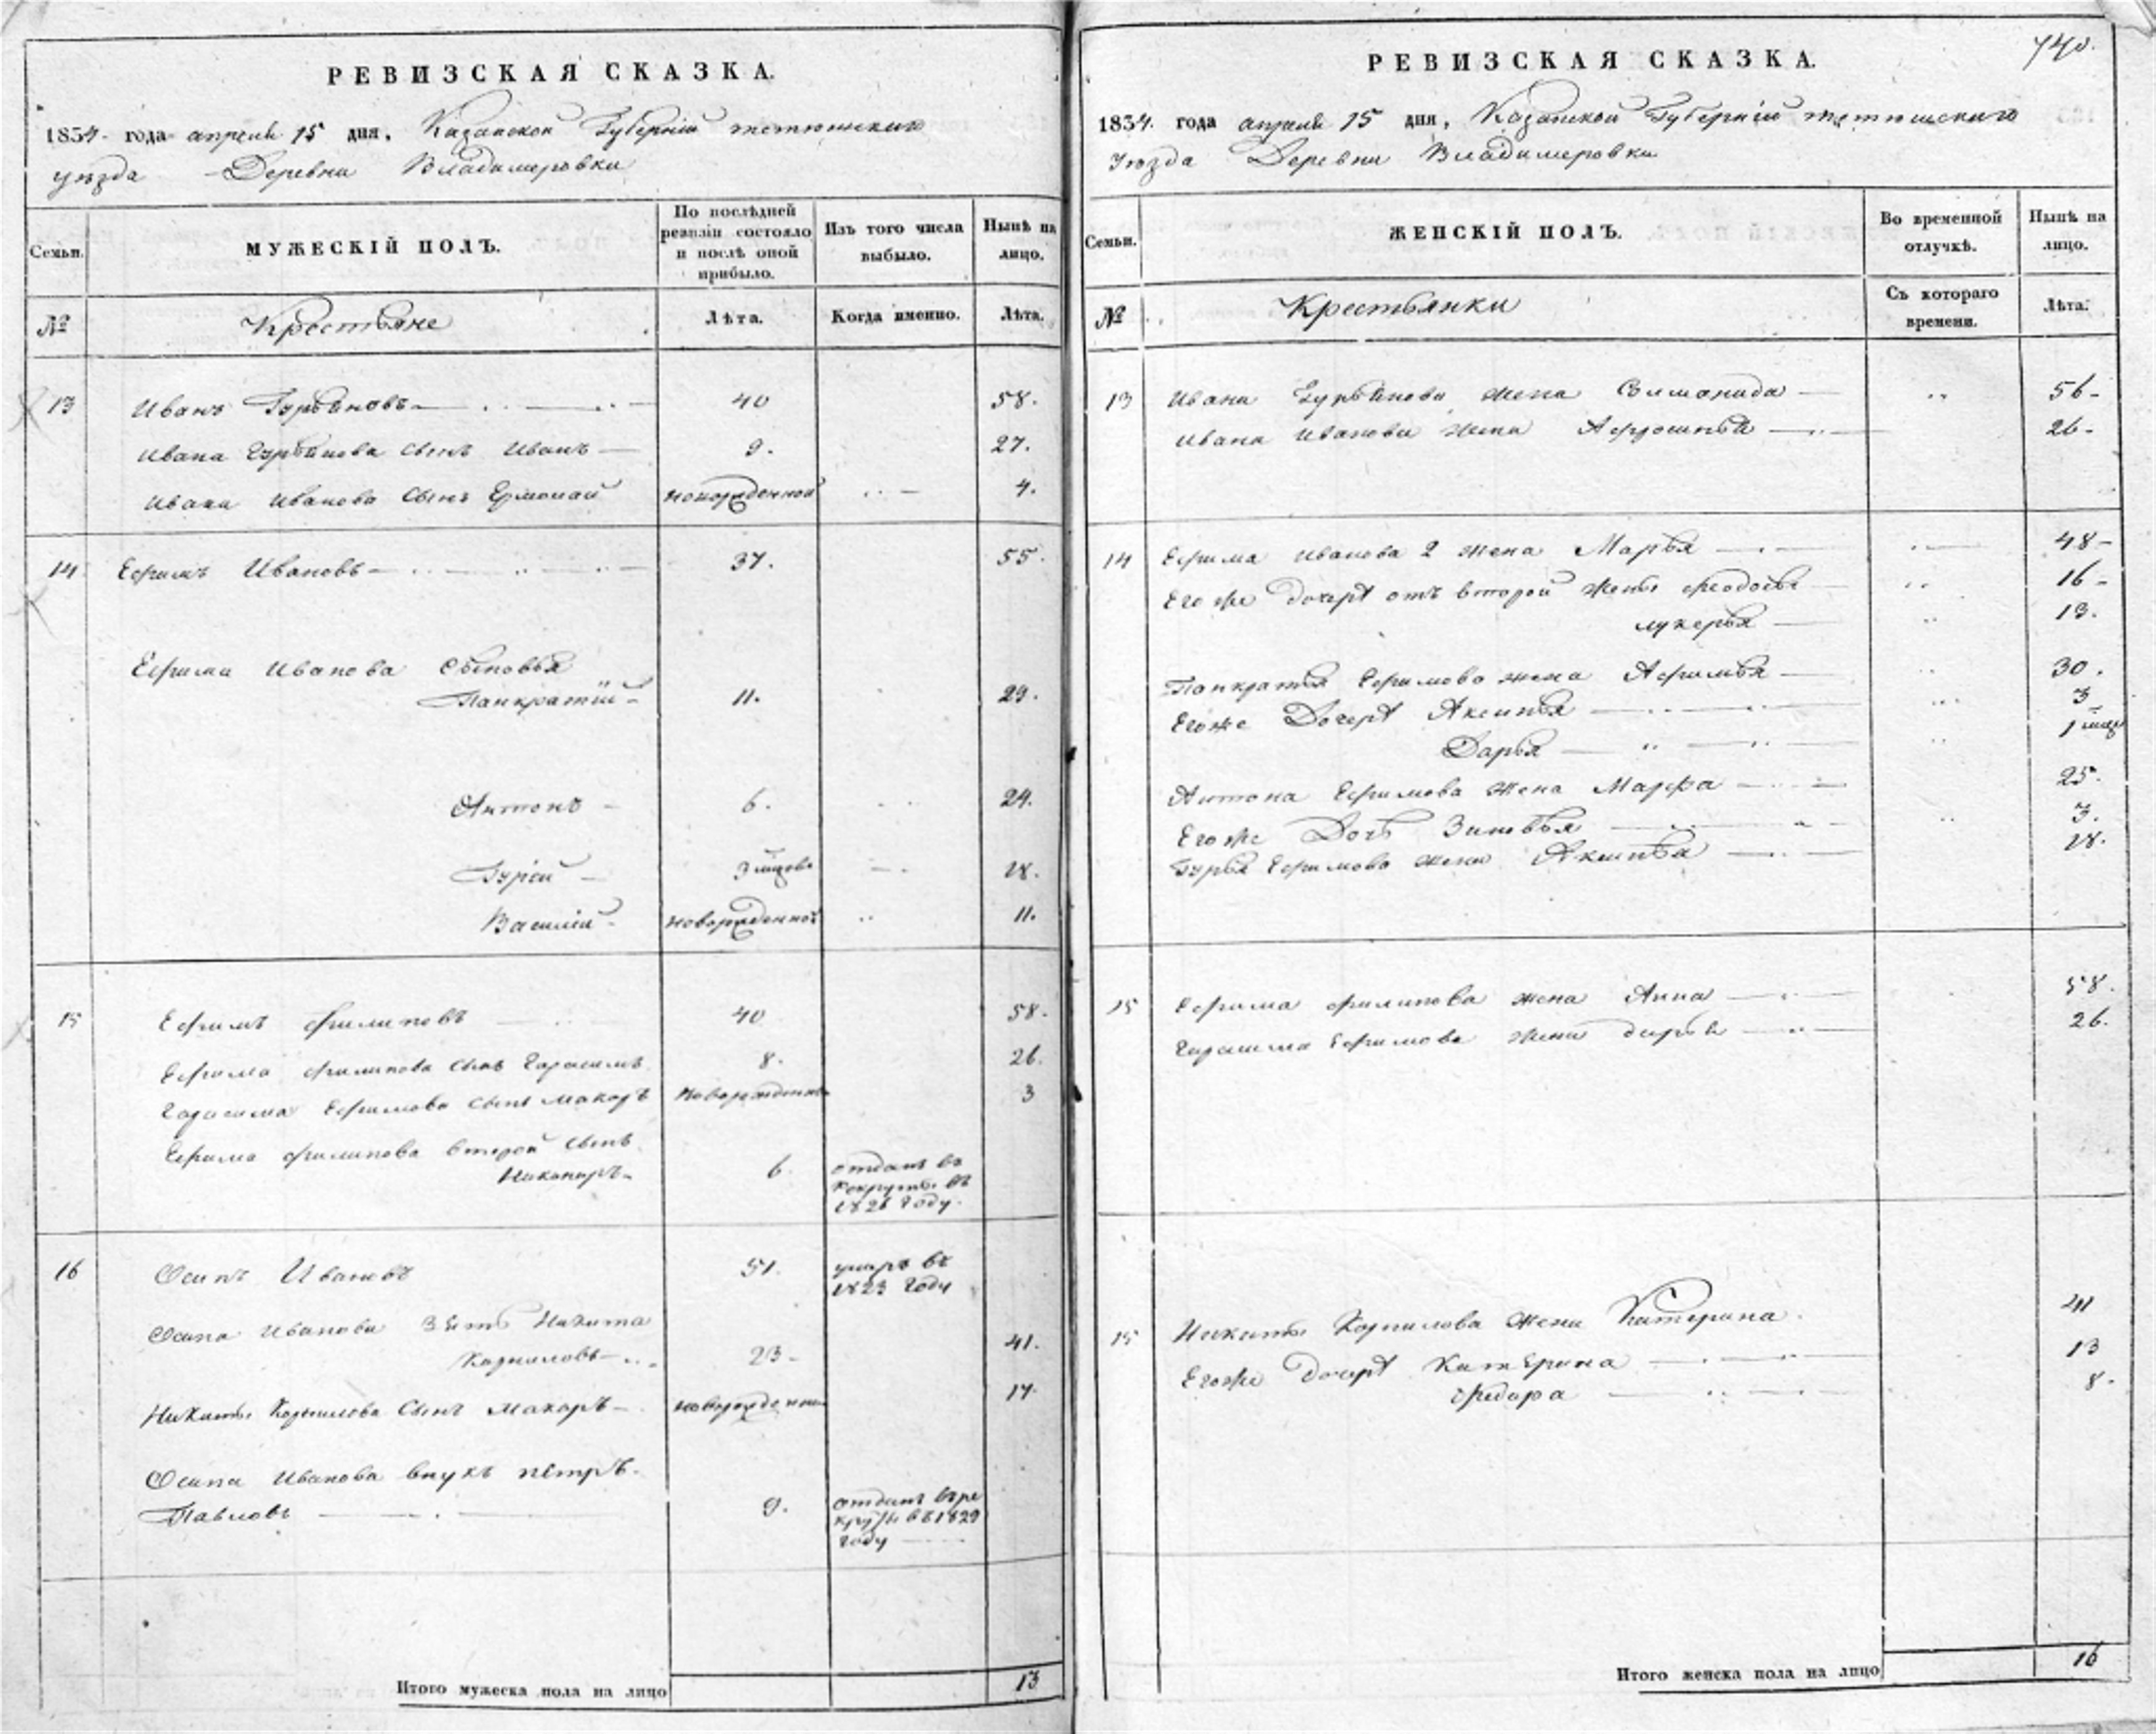 РЕВИЗСКАЯ СКАЗКА.
1834 года апреля 15 дня, Казанской Губернiи тетюшскаго
уѣзда Деревни Владимеровки
Семьи.
МУЖЕСКІЙ ПОЛЪ.
По послѣдней ревизіи состояло и послѣ оной прибыло.
Изъ того числа выбыло.
Нынѣ на лицо.
№
Крестьяне
Лѣта.
Когда именно.
Лѣта.
13 Иванъ Гурьяновъ 40 58.
Ивана Гурьянова сынъ Иванъ 9. 27.
Ивана Иванова сынъ Ермолай новорожденной 4.
14 Ефимъ Ивановъ 37. 55.
Ефима Иванова сыновья
Панкратiй 11. 29.
Антонъ 6. 24.
Гурiй 3 мѣсеца 18.
Василiй новорожденной 11.
15 Ефимъ Филиповъ 40 58.
Ефима Филипова сынъ Гарасимъ 8. 26.
Гарасима Ефимова сынъ Макаръ новорожденной 3
Ефима Филипова второй сынъ
Никаноръ 6. отданъ въ
рекруты въ
1826 году.
16 Осипъ Ивановъ 51. умеръ въ
1823 году
Осипа Иванова зять Никита
Корниловъ 23 41.
Никиты Корнилова сынъ Макаръ новорожденной 17
Осипа Иванова внукъ пётръ
Павловъ 9. отданъ въ ре
круты въ 1829
году
Итого мужеска пола на лицо 13
740.
РЕВИЗСКАЯ СКАЗКА.
1834. года апреля 15 дня, Казанской Губернiи тетюшскаго
уѣзда Деревни Владимеровки
Семьи.
ЖЕНСКІЙ ПОЛЪ.
Во временной отлучкѣ.
Нынѣ на лицо.
№
Крестьянки
Съ котораго времени.
Лѣта.
13 Ивана Гурьянова жена Соломанида 56
Ивана Иванова жена Афросинья 26
14 Ефима Иванова 2 жена Марья 48
Его же дочери отъ второй жены Феодосья 16
лукерья 13.
Панкратья Ефимова жена Афимья 30.
Его же Дочери Аксинья 3
Дарья 1 мѣс
Антона Ефимова жена Марфа 25.
Его же Дочь Зиновья 3.
Гурья Ефимова жена Аксинья 18.
15 Ефима Филипова жена Анна 58.
Гарасима Ефимова жена дарья 26.
15 Никиты Корнилова жена Катерина 41
Его же дочери Катерина 13
Федора 8.
Итого женска пола на лицо 16